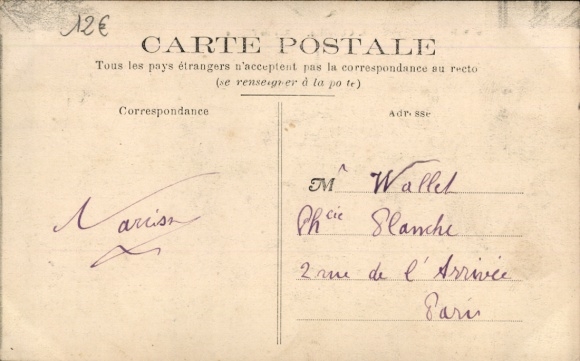 12€
CARTE POSTALE
Tous les pays étrangers n'acceptent pas la correspondance au recto
(se renseigner à la poste)
Correspondance
Adresse
Mr Wallet
Phcie Planche
2 rue de l'Arrivée
Paris